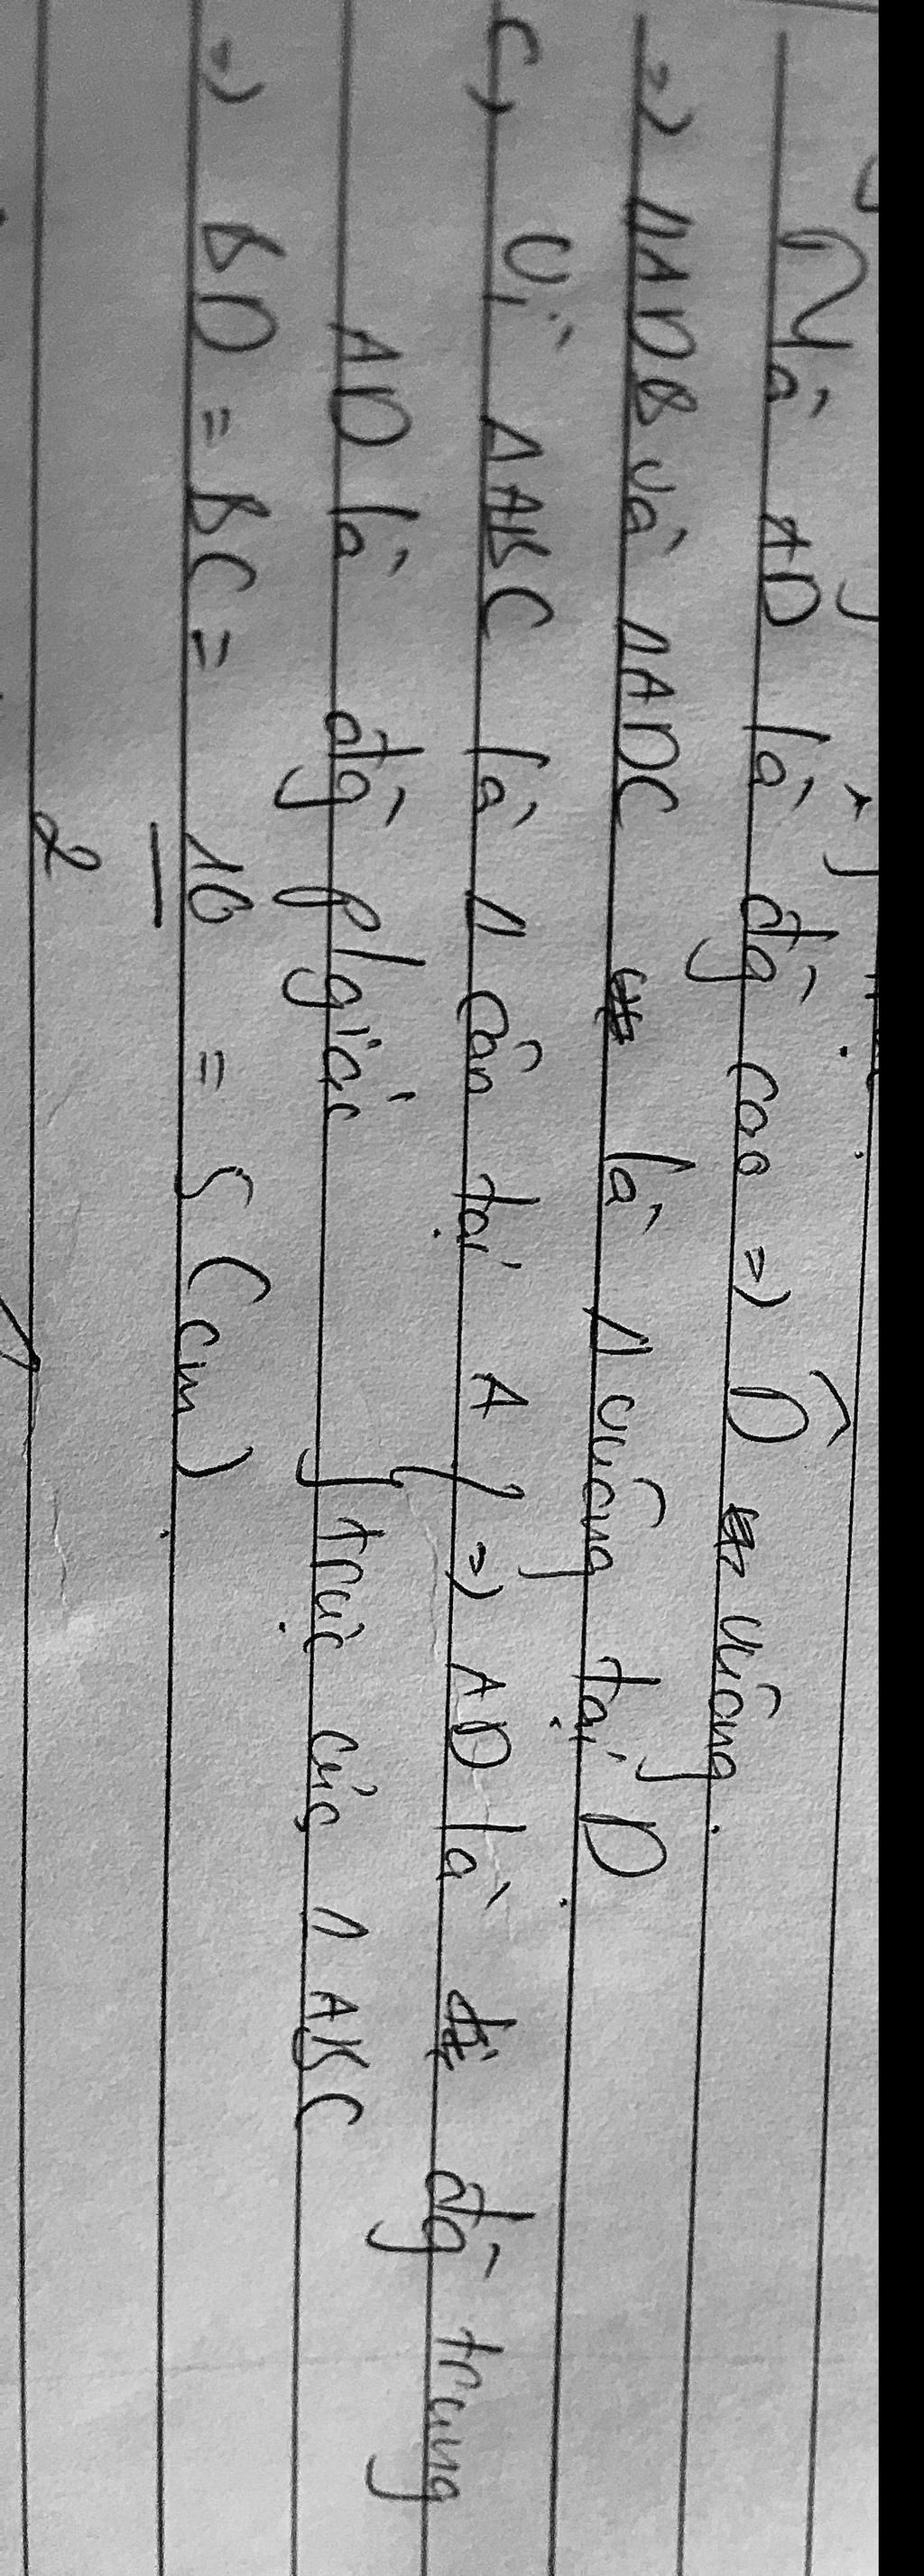 Mà AD là đg cao => D̂ vuông.
=> ΔADB và ΔADC là Δ vuông tại D.
c, Vì ΔABC là Δ cân tại A } => AD là đg trung
AD là đg p/giác } trực của ΔABC
=> BD = BC = 10/2 = 5 (cm).